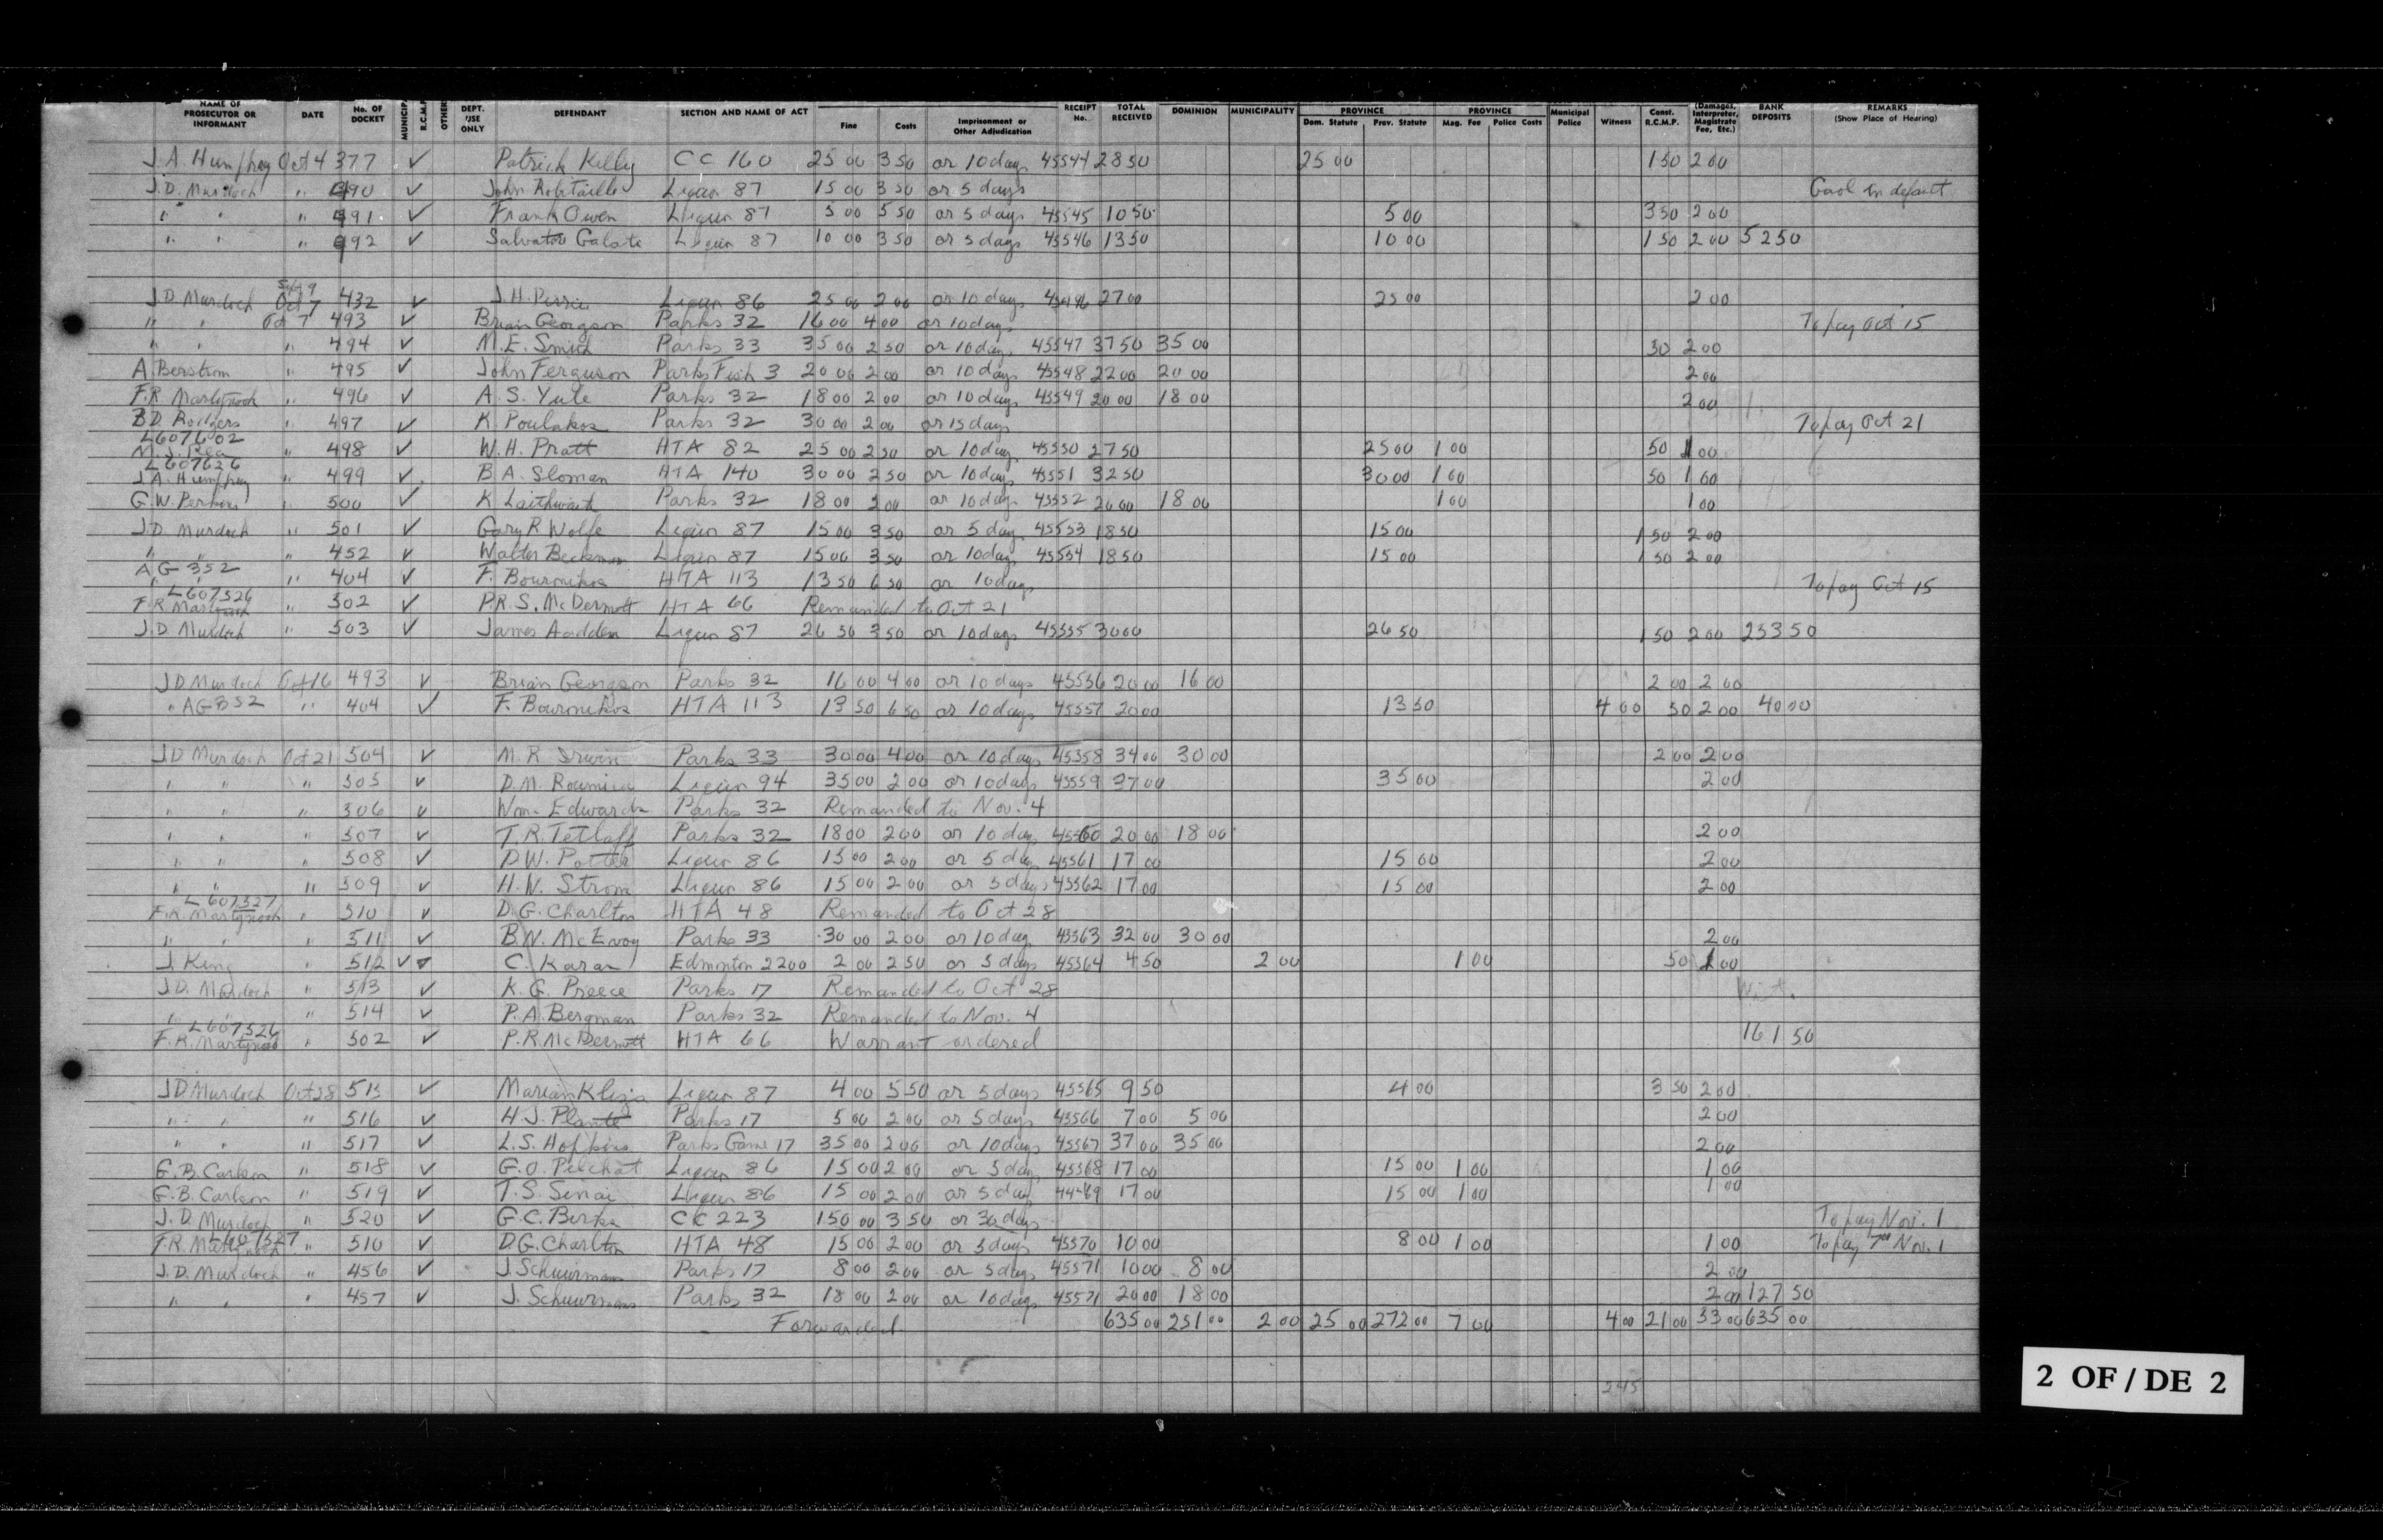 NAME OF PROSECUTOR OR INFORMANT DATE No. OF DOCKET MUNICIPAL R.C.M.P. OTHER DEPT. USE ONLY DEFENDANT SECTION AND NAME OF ACT Fine Costs Imprisonment or Other Adjudication RECEIPT No. TOTAL RECEIVED DOMINION MUNICIPALITY PROVINCE Dom. Statute Prov. Statute PROVINCE Mag. Fee Police Costs Municipal Police Witness Const. R.C.M.P. (Damages, Interpreter, Magistrate Fee, Etc.) BANK DEPOSITS REMARKS (Show Place of Hearing)
J.A. Humphrey Oct 4 377 ✓ Patrick Kelly CC 160 25 00 3 50 or 10 days 45544 28 50 25 00 1 50 2 00
J.D. Murdoch " 490 ✓ John Robitaille Liquor 87 15 00 3 50 or 5 days Gaol in default
" " " 491 ✓ Frank Owen Liquor 87 5 00 5 50 or 5 days 45545 10 50 5 00 3 50 2 00
" " " 492 ✓ Salvator Galate Liquor 87 10 00 3 50 or 5 days 45546 13 50 10 00 1 50 2 00 52 50
Sept 9
J.D. Murdoch Oct 7 432 ✓ J.H. Liquor 86 25 00 2 00 or 10 days 27 00 25 00 2 00
" " Oct 7 493 ✓ Brian Georgson Parks 32 16 00 4 00 or 10 days To pay Oct 15
" " " 494 ✓ M.E. Smith Parks 33 35 00 2 50 or 10 days 45547 37 50 35 00 50 2 00
A Berstrom " 495 ✓ John Ferguson Parks Fish 3 20 00 2 00 or 10 days 45548 22 00 20 00 2 00
F.R. Martynook " 496 ✓ A.S. Yule Parks 32 18 00 2 00 or 10 days 45549 20 00 18 00 2 00
B.D. Rodgers " 497 ✓ K Poulakos Parks 32 30 00 2 00 or 15 days To pay Oct 21
L607602
M.J. Rea " 498 ✓ W.H. Pratt HTA 82 25 00 2 50 or 10 days 45550 27 50 25 00 1 00 50 1 00
L607626
J.A. Humphrey " 499 ✓ B.A. Sloman HTA 140 30 00 2 50 or 10 days 45551 32 50 30 00 1 00 50 1 00
G.W. Perkins " 500 ✓ K Laithwait Parks 32 18 00 2 00 or 10 days 45552 20 00 18 00 1 00 1 00
J.D. Murdoch " 501 ✓ Gary R Wolfe Liquor 87 15 00 3 50 or 5 days 45553 18 50 15 00 1 50 2 00
" " " 452 ✓ Walter Beckman Liquor 87 15 00 3 50 or 10 days 45554 18 50 15 00 1 50 2 00
AG 352
" " " 404 ✓ F. Bournikos HTA 113 13 50 6 50 or 10 days To pay Oct 15
L607526
F.R. Martynook " 502 ✓ P.R.S. McDermott HTA 66 Remanded to Oct 21
J.D. Murdoch " 503 ✓ James Liquor 87 26 50 3 50 or 10 days 45555 30 00 26 50 1 50 2 00 253 50
J D Murdoch Oct 16 493 ✓ Brian Georgson Parks 32 16 00 4 00 or 10 days 45556 20 00 16 00 2 00 2 00
" AG 352 " 404 ✓ F. Bournikos HTA 113 13 50 6 50 or 10 days 45557 20 00 13 50 4 00 50 2 00 40 00
J.D Murdoch Oct 21 504 ✓ M.R. Irwin Parks 33 30 00 4 00 or 10 days 45558 34 00 30 00 2 00 2 00
" " " 505 ✓ D.M. Liquor 94 35 00 2 00 or 10 days 45559 37 00 35 00 2 00
" " " 506 ✓ Wm. Edwards Parks 32 Remanded to Nov. 4
" " " 507 ✓ T.R. Tetlaff Parks 32 18 00 2 00 or 10 days 45560 20 00 18 00 2 00
" " " 508 ✓ D.W. Potter Liquor 86 15 00 2 00 or 5 days 45561 17 00 15 00 2 00
" " " 509 ✓ H.W. Strom Liquor 86 15 00 2 00 or 5 days 45562 17 00 15 00 2 00
L 607527
F.R. Martynook " 510 ✓ D.G. Charlton HTA 48 Remanded to Oct 28
" " " 511 ✓ B.W. McEvoy Parks 33 30 00 2 00 or 10 days 45563 32 00 30 00 2 00
J. King " 512 ✓ C. Karan Edmonton 2200 2 00 2 50 or 5 days 45564 4 50 2 00 1 00 50 1 00
J.D. Murdoch " 513 ✓ K.G. Preece Parks 17 Remanded to Oct 28 Wit.
" " " 514 ✓ P.A. Bergman Parks 32 Remanded to Nov. 4
L607526
F.R. Martynook " 502 ✓ P.R. McDermott HTA 66 Warrant ordered 161 50
J D Murdoch Oct 28 515 ✓ Marian Liquor 87 4 00 5 50 or 5 days 45565 9 50 4 00 3 50 2 00
" " " 516 ✓ H.J. Plante Parks 17 5 00 2 00 or 5 days 45566 7 00 5 00 2 00
" " " 517 ✓ L.S. Hopkins Parks Game 17 35 00 2 00 or 10 days 45567 37 00 35 00 2 00
G.B. Carlson " 518 ✓ G.O. Pelchat Liquor 86 15 00 2 00 or 5 days 45568 17 00 15 00 1 00 1 00
G.B. Carlson " 519 ✓ T.S. Sinai Liquor 86 15 00 2 00 or 5 days 17 00 15 00 1 00 1 00
J.D. Murdoch " 520 ✓ G.C. Berks CC 223 150 00 3 50 or 30 days To pay Nov. 1
L607527
F.R. Martynook " 510 ✓ D.G. Charlton HTA 48 15 00 2 00 or 5 days 45570 10 00 8 00 1 00 1 00 To pay 7 00 Nov. 1
J.D. Murdoch " 456 ✓ J. Schuurmans Parks 17 8 00 2 00 or 5 days 45571 10 00 8 00 2 00
" " " 457 ✓ J. Schuurmans Parks 32 18 00 2 00 or 10 days 45571 20 00 18 00 2 00 127 50
Forwarded 635 00 251 00 2 00 25 00 272 00 7 00 4 00 21 00 33 00 635 00
245
2 OF / DE 2